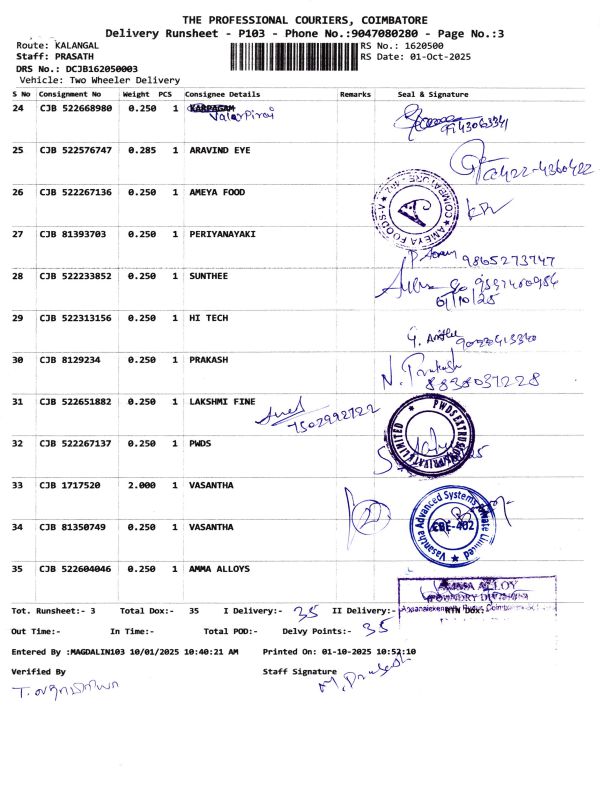 THE PROFESSIONAL COURIERS, COIMBATORE
Delivery Runsheet - P103 - Phone No.:9047080280 - Page No.:3
Route: KALANGAL
Staff: PRASATH
DRS No.: DCJB162050003
Vehicle: Two Wheeler Delivery
RS No.: 1620500
RS Date: 01-Oct-2025
S No Consignment No Weight PCS Consignee Details Remarks Seal & Signature
24 CJB 522668980 0.250 1 KARPAGAM
Valarpirai
25 CJB 522576747 0.285 1 ARAVIND EYE
0422-4360422
26 CJB 522267136 0.250 1 AMEYA FOOD
AMEYA FOODS
27 CJB 81393703 0.250 1 PERIYANAYAKI
9865273747
28 CJB 522233852 0.250 1 SUNTHEE
29 CJB 522313156 0.250 1 HI TECH
30 CJB 8129234 0.250 1 PRAKASH
N. Prakash
8838037228
31 CJB 522651882 0.250 1 LAKSHMI FINE
7502992722
32 CJB 522267137 0.250 1 PWDS
PRIVATE LIMITED
33 CJB 1717520 2.000 1 VASANTHA
34 CJB 81350749 0.250 1 VASANTHA
Vasantha Advanced Systems Private Limited
CBE-402
35 CJB 522604046 0.250 1 AMMA ALLOYS
AMMA ALLOY
FOUNDRY DIVISION
Tot. Runsheet:- 3 Total Dox:- 35 I Delivery:- 35 II Delivery:- RTN Dox:-
Out Time:- In Time:- Total POD:- Delvy Points:- 35
Entered By :MAGDALIN103 10/01/2025 10:40:21 AM Printed On: 01-10-2025 10:52:10
Verified By Staff Signature